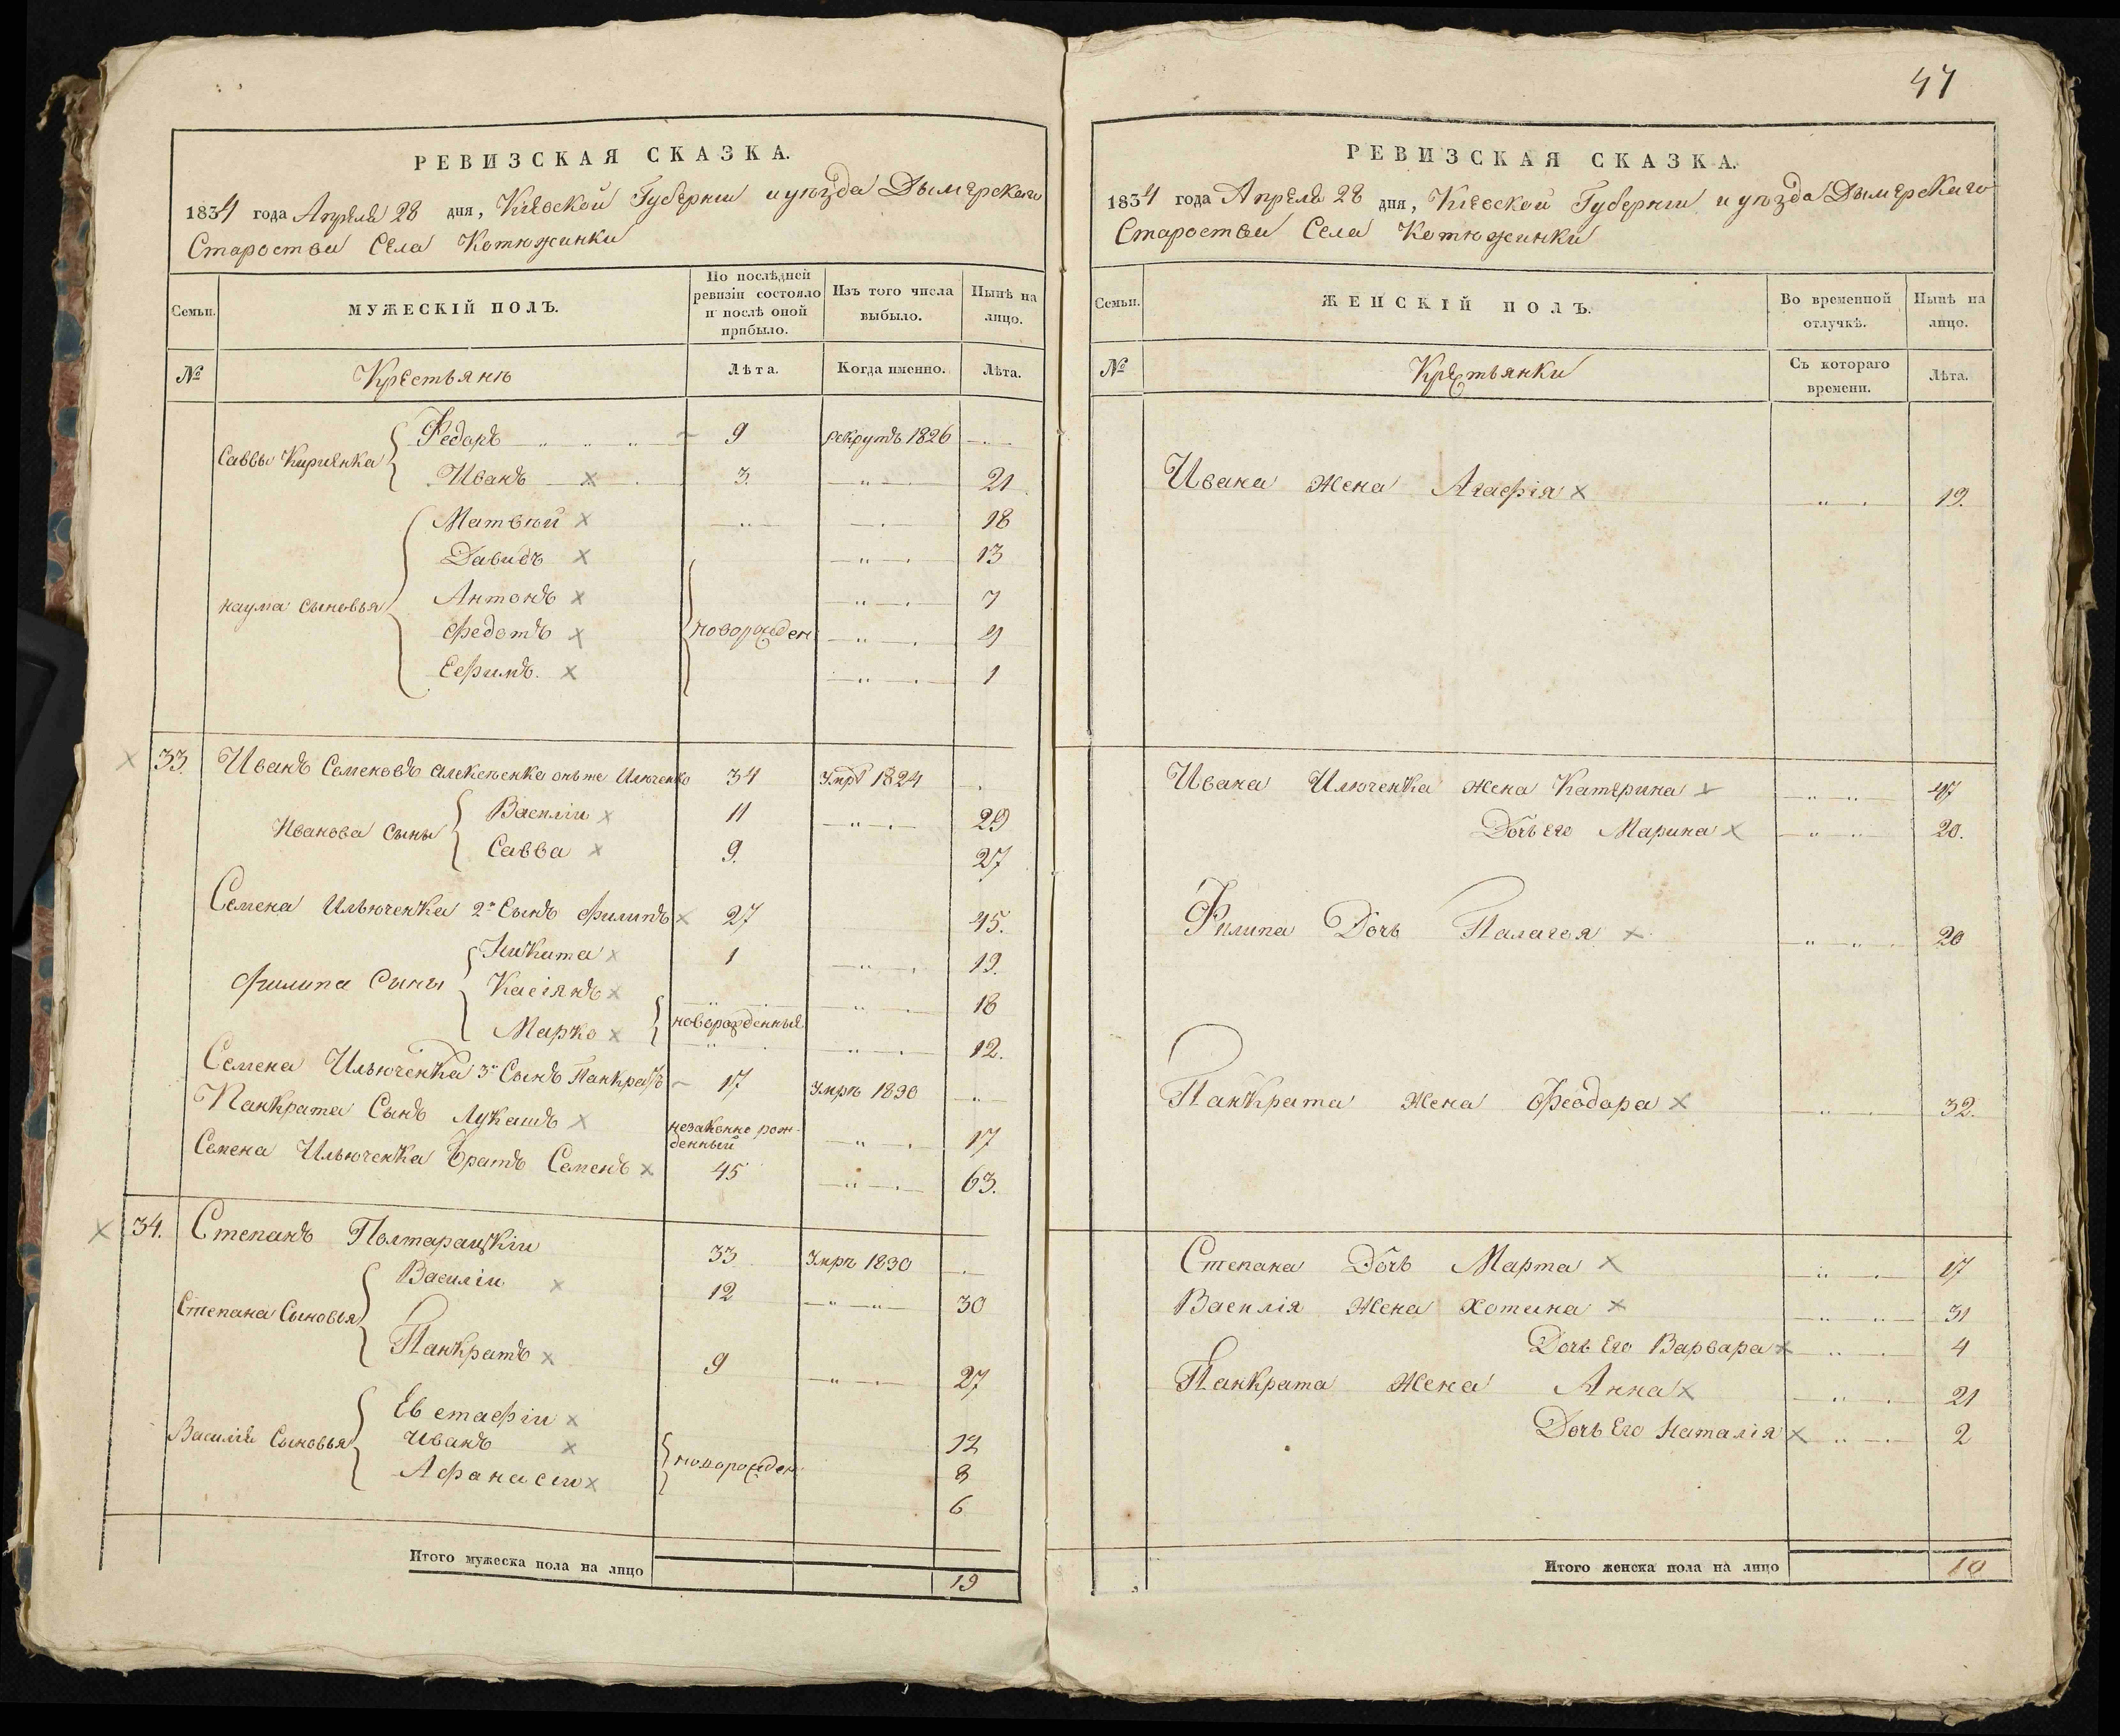 47
РЕВИЗСКАЯ СКАЗКА.
1834 года Апреля 28 дня, Кіевской Губерніи и уѣзда Дымерскаго
Староства Села Котюжинки
Семьи.
МУЖЕСКІЙ ПОЛЪ.
По послѣдней
ревизіи состояло
и послѣ оной
прибыло.
Изъ того числа
выбыло.
Нынѣ на
лицо.
№
Крестьянѣ
Лѣта.
Когда именно.
Лѣта.
Саввы Кириенка
Федоръ 9 рекрутъ 1826
Иванъ × 3. 21
наума сыновья
Матвѣй × 18
Давидъ × 13
Антонъ × 7
Федотъ × 4
Ефимъ. × 1
новорожден:
× 33. Иванъ Семеновъ Алексеенка онъ же Илюченко 34 Умръ 1824
Иванова сыны
Василіи × 11 29
Савва × 9. 27
Семена Ильюченка 2й Сынъ Филипъ × 27 45.
Филипа Сыны
Никита × 1 19.
Касіянъ × 18
Марко × 12.
новорожденныя
Семена Ильюченка 3й Сынъ Панкратъ 17 Умръ 1830
Панкрата Сынъ Лукашъ × незаконно рож-
денный 17
Семена Ильюченка Братъ Семенъ × 45 63.
× 34. Степанъ Полтарацкіи 33 Умръ 1830
Степана Сыновья
Василіи × 12 30
Панкратъ × 9 27
Василія Сыновья
Евстафіи × 12
Иванъ × 8
Афанасіи × 6
новорожден:
Итого мужеска пола на лицо 19
РЕВИЗСКАЯ СКАЗКА.
1834 года Апреля 28 дня, Кіевской Губерніи и уѣзда Дымерскаго
Староства Села Котюжинки
Семьи.
ЖЕНСКІЙ ПОЛЪ.
Во временной
отлучкѣ.
Нынѣ на
лицо.
№
Крестьянки
Съ котораго
времени.
Лѣта.
Ивана жена Агафія × 19.
Ивана Илюченка жена Катерина × 47
Дочь его Марина × 20.
Филипа Дочь Палагея × 20
Панкрата жена Феодора × 32.
Степана Дочь Марта × 17
Василія жена Хотина × 31
Дочь Его Варвара × 4
Панкрата жена Анна × 21
Дочь Его Наталія × 2
Итого женска пола на лицо 10